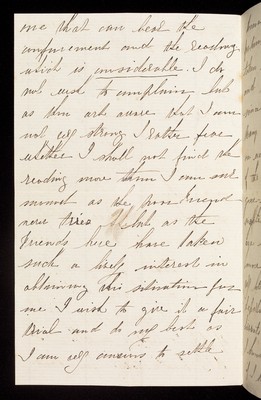 one that can bear the
confinement and the reading
which is considerable. I do
not wish to complain but
as thou art aware that I am
not very strong I rather fear
whether I shall not find the
reading more than I am
as the
tries but as the
Friends here have taken
such a lively interest in
obtaining this situation for
me I wish to give it a fair
trial and do my best as
I am very anxious to settle